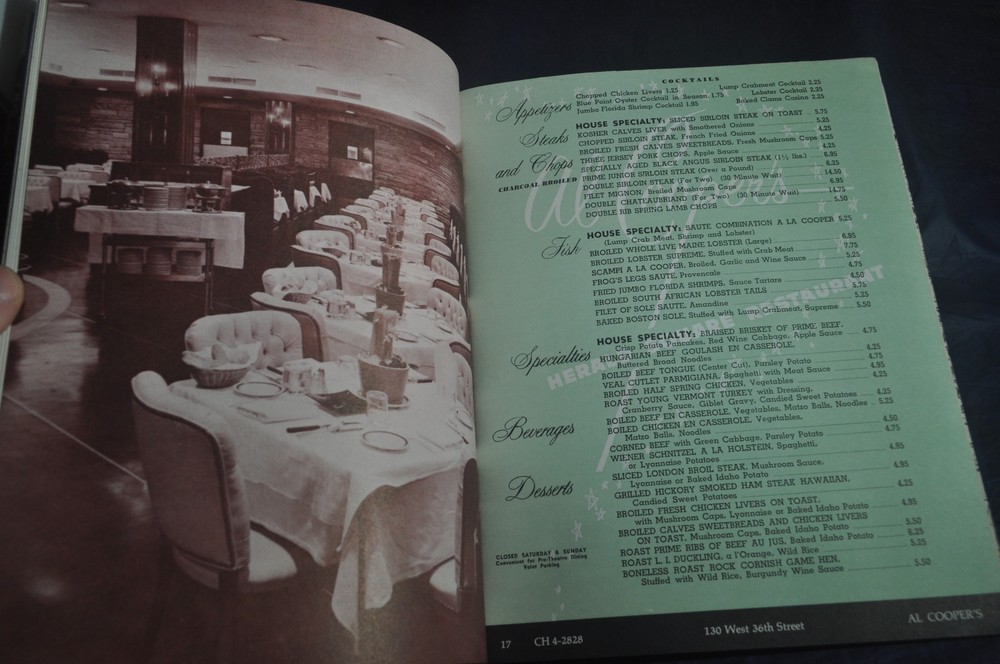 COCKTAILS
Appetizers
Chopped Chicken Livers 1.25
Lump Crabmeat Cocktail 2.25
Blue Point Oyster Cocktail in Season 1.75
Lobster Cocktail 2.25
Jumbo Florida Shrimp Cocktail 1.95
Baked Clams Casino 2.25
Steaks
and Chops
CHARCOAL BROILED
HOUSE SPECIALTY: SLICED SIRLOIN STEAK ON TOAST 5.75
KOSHER CALVES LIVER with Smothered Onions 5.25
CHOPPED SIRLOIN STEAK, French Fried Onions 4.25
BROILED FRESH CALVES SWEETBREADS, Fresh Mushroom Caps 5.25
THREE JERSEY PORK CHOPS, Apple Sauce 4.25
SPECIALLY AGED BLACK ANGUS SIRLOIN STEAK (1½ lbs.) 6.95
PRIME JUNIOR SIRLOIN STEAK (Over a Pound) 6.25
DOUBLE SIRLOIN STEAK (For Two) (30 Minute Wait) 14.50
FILET MIGNON, Broiled Mushroom Caps 6.95
DOUBLE CHATEAUBRIAND (For Two) (30 Minute Wait) 14.75
DOUBLE RIB SPRING LAMB CHOPS 5.50
Fish
HOUSE SPECIALTY: SAUTE COMBINATION A LA COOPER 5.25
(Lump Crab Meat, Shrimp and Lobster)
BROILED WHOLE LIVE MAINE LOBSTER (Large) 6.95
BROILED LOBSTER SUPREME, Stuffed with Crab Meat 7.75
SCAMPI A LA COOPER, Broiled, Garlic and Wine Sauce 5.25
FROG'S LEGS SAUTE, Provencale 4.75
FRIED JUMBO FLORIDA SHRIMPS, Sauce Tartare 4.50
BROILED SOUTH AFRICAN LOBSTER TAILS 5.75
FILET OF SOLE SAUTE, Amandine 5.25
BAKED BOSTON SOLE, Stuffed with Lump Crabmeat, Supreme 5.50
HERALD SQUARE RESTAURANT
Specialties
HOUSE SPECIALTY: BRAISED BRISKET OF PRIME BEEF,
Crisp Potato Pancakes, Red Wine Cabbage, Apple Sauce 4.75
HUNGARIAN BEEF GOULASH EN CASSEROLE,
Buttered Broad Noodles 4.25
BOILED BEEF TONGUE (Center Cut), Parsley Potato 4.75
VEAL CUTLET PARMIGIANA, Spaghetti with Meat Sauce 4.95
BROILED HALF SPRING CHICKEN, Vegetables 4.25
ROAST YOUNG VERMONT TURKEY with Dressing,
Cranberry Sauce, Giblet Gravy, Candied Sweet Potatoes 4.25
BOILED BEEF EN CASSEROLE, Vegetables, Matso Balls, Noodles 5.25
BOILED CHICKEN EN CASSEROLE, Vegetables,
Matso Balls, Noodles 4.50
CORNED BEEF with Green Cabbage, Parsley Potato 4.75
WIENER SCHNITZEL A LA HOLSTEIN, Spaghetti,
or Lyonnaise Potatoes 4.95
SLICED LONDON BROIL STEAK, Mushroom Sauce,
Lyonnaise or Baked Idaho Potato 4.95
GRILLED HICKORY SMOKED HAM STEAK HAWAIIAN,
Candied Sweet Potatoes 4.25
BROILED FRESH CHICKEN LIVERS ON TOAST,
with Mushroom Caps, Lyonnaise or Baked Idaho Potato 4.95
BROILED CALVES SWEETBREADS AND CHICKEN LIVERS
ON TOAST, Mushroom Caps, Baked Idaho Potato 5.50
ROAST PRIME RIBS OF BEEF AU JUS, Baked Idaho Potato 6.25
ROAST L. I. DUCKLING, a l'Orange, Wild Rice 5.25
BONELESS ROAST ROCK CORNISH GAME HEN,
Stuffed with Wild Rice, Burgundy Wine Sauce 5.50
Beverages
Desserts
CLOSED SATURDAY & SUNDAY
Convenient for Pre-Theatre Dining
Valet Parking
17 CH 4-2828
130 West 36th Street
AL COOPER'S